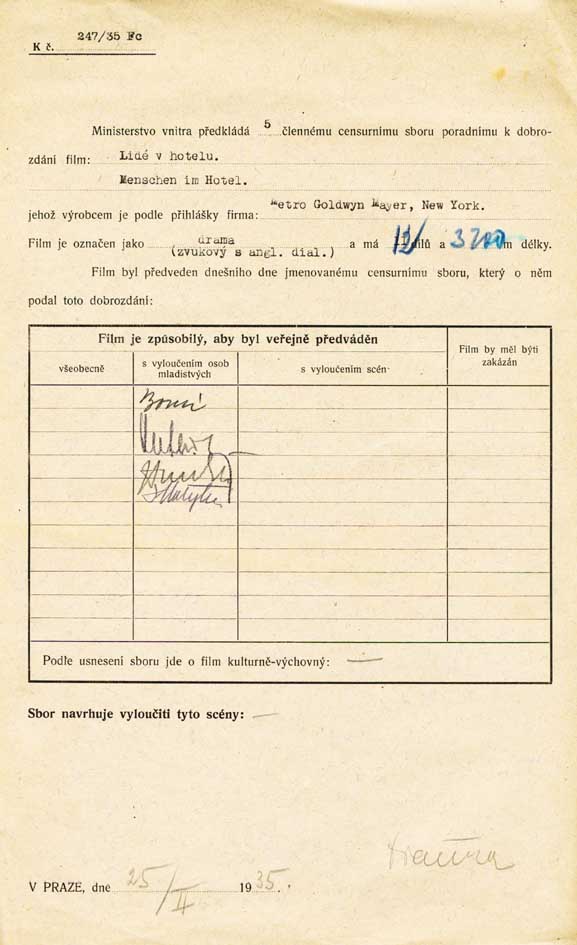 247/35 Fc
K č.
Ministerstvo vnitra předkládá 5 člennému censurnímu sboru poradnímu k dobro-
zdání film: Lidé v hotelu.
Menschen im Hotel.
jehož výrobcem je podle přihlášky firma: Metro Goldwyn Mayer, New York.
Film je označen jako drama a má 12 dílů a 3200 m délky.
(zvukový s angl. dial.)
Film byl předveden dnešního dne jmenovanému censurnímu sboru, který o něm
podal toto dobrozdání:
Film je způsobilý, aby byl veřejně předváděn
Film by měl býti
zakázán
všeobecně
s vyloučením osob
mladistvých
s vyloučením scén
Podle usnesení sboru jde o film kulturně-výchovný: —
Sbor navrhuje vyloučiti tyto scény: —
V PRAZE, dne 25/II 1935.